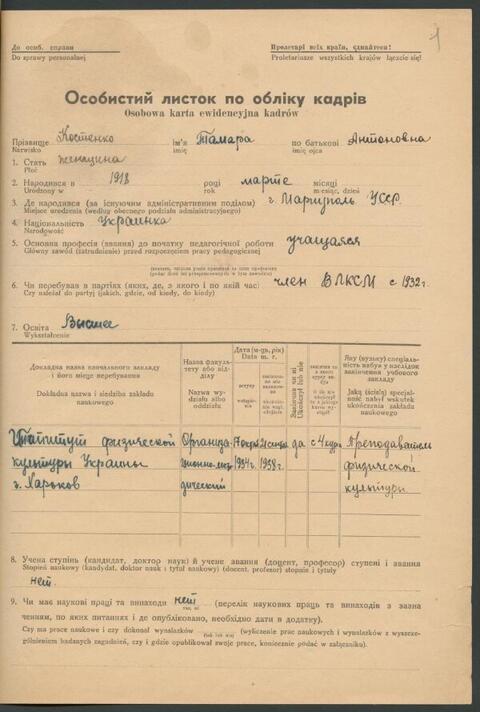 1
До особ. справи
Do sprawy personalnej
Пролетарі всіх країн, єднайтеся!
Proletariusze wszystkich krajów łączcie się!
Особистий листок по обліку кадрів
Osobowa karta ewidencyjna kadrów
Прізвище Костенко ім'я Тамара по батькові Антоновна
Nazwisko imię imię ojca
1. Стать женщина
Płeć
2. Народився в 1918 році марте місяці
Urodzony w miesiąc, dzień
3. Де народився (за існуючим адміністративним поділом) г. Мариуполь УССР.
Miejsce urodzenia (według obecnego podziału administracyjnego)
4. Національність Украинка
Narodowość
5. Основна професія (звання) до початку педагогічної роботи учащаяся
Główny zawód (zatrudnienie) przed rozpoczęciem pracy pedagogicznej
6. Чи перебував в партіях (яких, де, з якого і по який час) член ВЛКСМ с 1932г.
Czy należał do partyj (jakich, gdzie, od kiedy, do kiedy)
7. Освіта Высшее
Wykształcenie
Докладна назва навчального закладу і його місце перебування
Dokładna nazwa i siedziba zakładu naukowego
Назва факультету або відділу
Nazwa wydziału albo oddziału
Дата (м-ць, рік)
Data m. r.
вступу
Закінчив чи ні
Ukończył lub nie
Яку (вузьку) спеціальність набув у наслідок закінчення учбового закладу
Jaką (ścisłą) specjalność nabył wskutek ukończenia zakładu
Институт физической культуры Украины г. Харьков
1934г. 1938г. да с 4 курса
Преподаватель физической культуры
8. Учена ступінь (кандидат, доктор наук) й учене звання (доцент, професор) ступені і звання
Stopień naukowy (kandydat, doktor nauk i tytuł naukowy) (docent, profesor) stopnie i tytuły
нет.
9. Чи має наукові праці та винаходи нет (перелік наукових праць та винаходів з зазначенням, по яких питаннях і де опубліковано, необхідно дати в додатку).
Czy ma prace naukowe i czy dokonał wynalazków (wyliczenie prac naukowych i wynalazków z wyszczególnieniem badanych zagadnień, czy i gdzie opublikował swoje prace, koniecznie podać w załączniku).